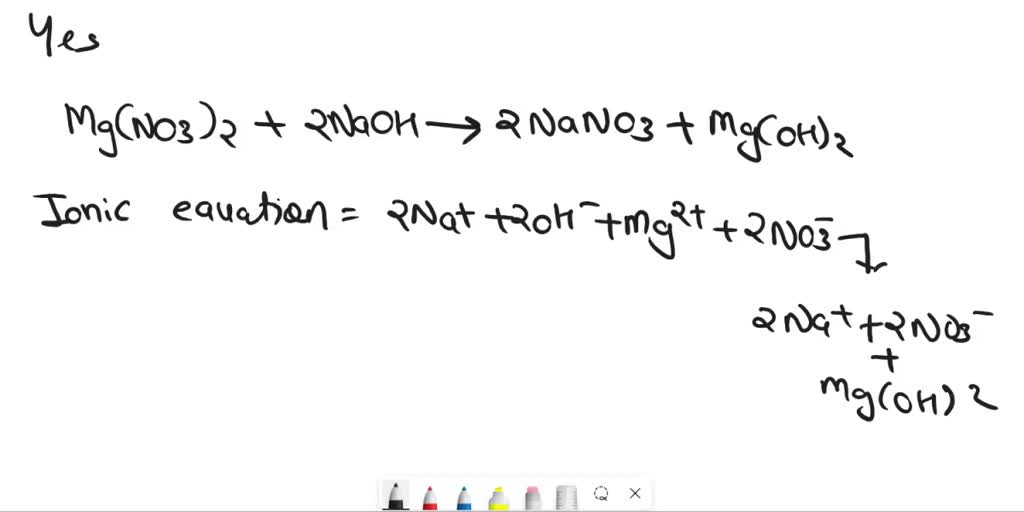 Yes
Mg(NO3)2 + 2NaOH → 2NaNO3 + Mg(OH)2
Ionic eauation = 2Na+ + 2OH- + Mg2+ + 2NO3- →
2Na+ + 2NO3-
+
Mg(OH)2